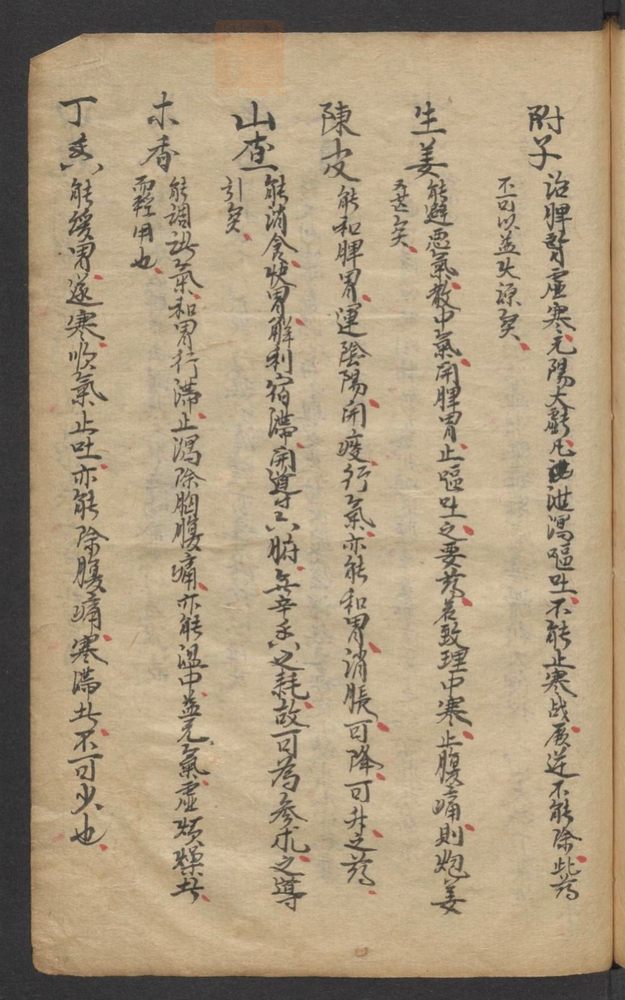 附子 治脾腎虛寒元陽大虧凡泄瀉嘔吐不能止寒战厥逆不能除此药
不可以益火源矣
生姜 能避恶氣救中氣開脾胃止嘔吐之要药若致理中寒止腹痛則炮姜
又甚矣
陳皮 能和脾胃運陰陽開痰行氣亦能和胃消脹可降可升之药
山查 能消食快胃解利宿滯開導六腑無辛香之耗故可為參朮之導
引矣
木香 能調諸氣和胃行滯止瀉除胸腹痛亦能溫中益元氣虛烦燥者
而輕用也
丁香 能缓胃逐寒吹氣止吐亦能除腹痛寒滿者不可少也